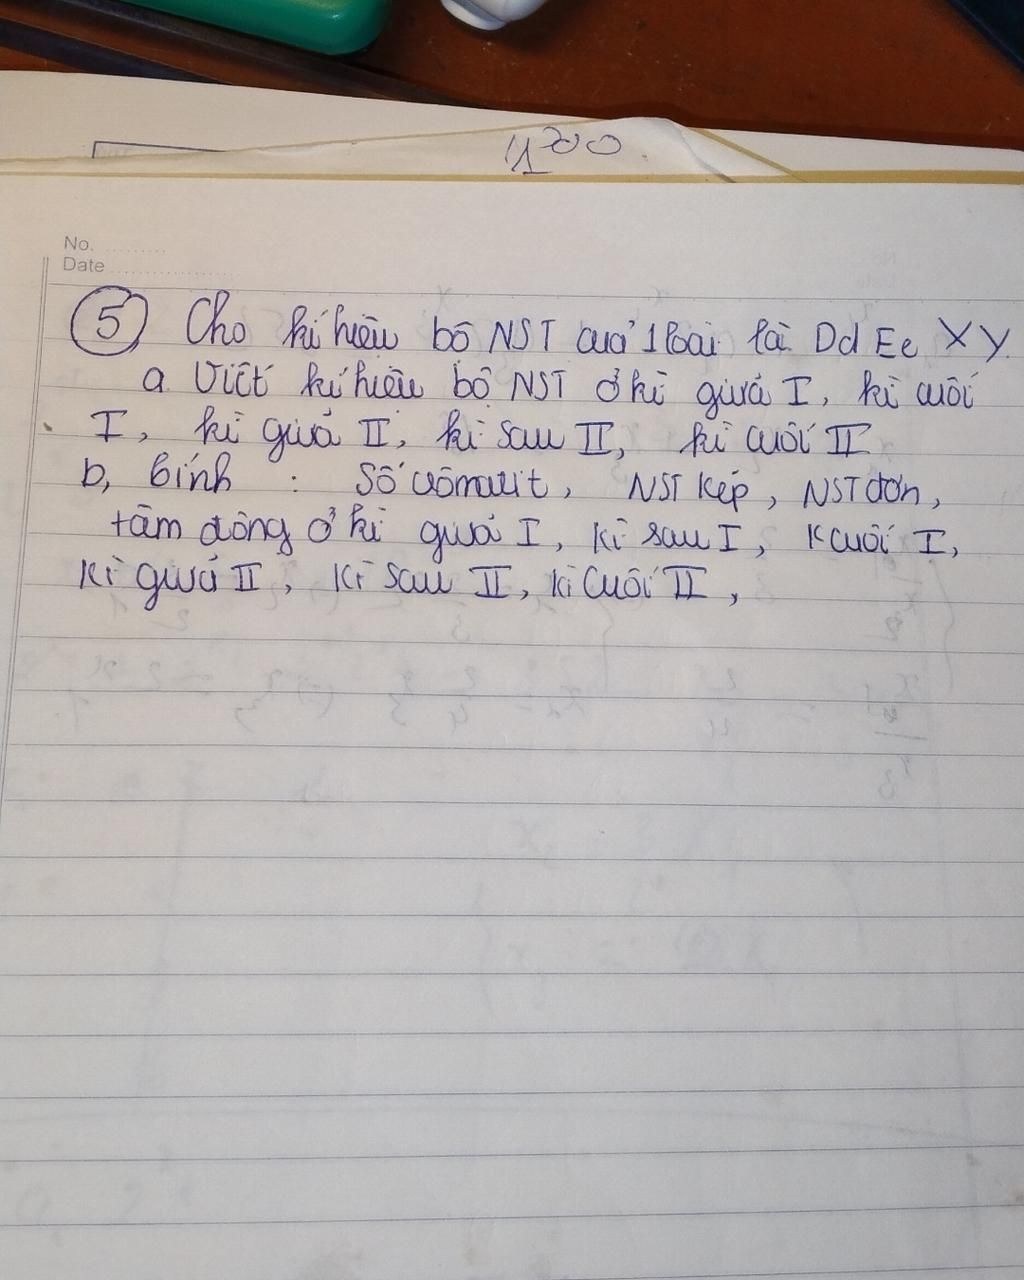 1200
No. ..........
Date ....................
5 Cho kí hiệu bộ NST của 1 loài là Dd Ee XY.
a. Viết kí hiệu bộ NST ở kì giữa I, kì cuối
I, kì giữa II, kì sau II, kì cuối II
b, Tính : Số crômatit, NST kép, NST đơn,
tâm động ở kì giữa I, kì sau I, K cuối I,
Kì giữa II, Kì sau II, kì cuối II,